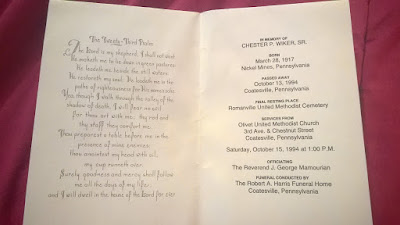 The Twenty-Third Psalm
The Lord is my shepherd; I shall not want
He maketh me to lie down in green pastures:
He leadeth me beside the still waters.
He restoreth my soul: He leadeth me in the
paths of righteousness for His name's sake.
Yea, though I walk through the valley of the
shadow of death, I will fear no evil:
for thou art with me; thy rod and
thy staff they comfort me.
Thou preparest a table before me in the
presence of mine enemies:
thou anointest my head with oil;
my cup runneth over.
Surely goodness and mercy shall follow
me all the days of my life:
and I will dwell in the house of the Lord for ever
IN MEMORY OF
CHESTER P. WIKER, SR.
BORN
March 28, 1917
Nickel Mines, Pennsylvania
PASSED AWAY
October 13, 1994
Coatesville, Pennsylvania
FINAL RESTING PLACE
Romansville United Methodist Cemetery
SERVICES FROM
Olivet United Methodist Church
3rd Ave. & Chestnut Street
Coatesville, Pennsylvania
Saturday, October 15, 1994 at 1:00 P.M.
OFFICIATING
The Reverend J. George Mamourian
FUNERAL CONDUCTED BY
The Robert A. Harris Funeral Home
Coatesville, Pennsylvania